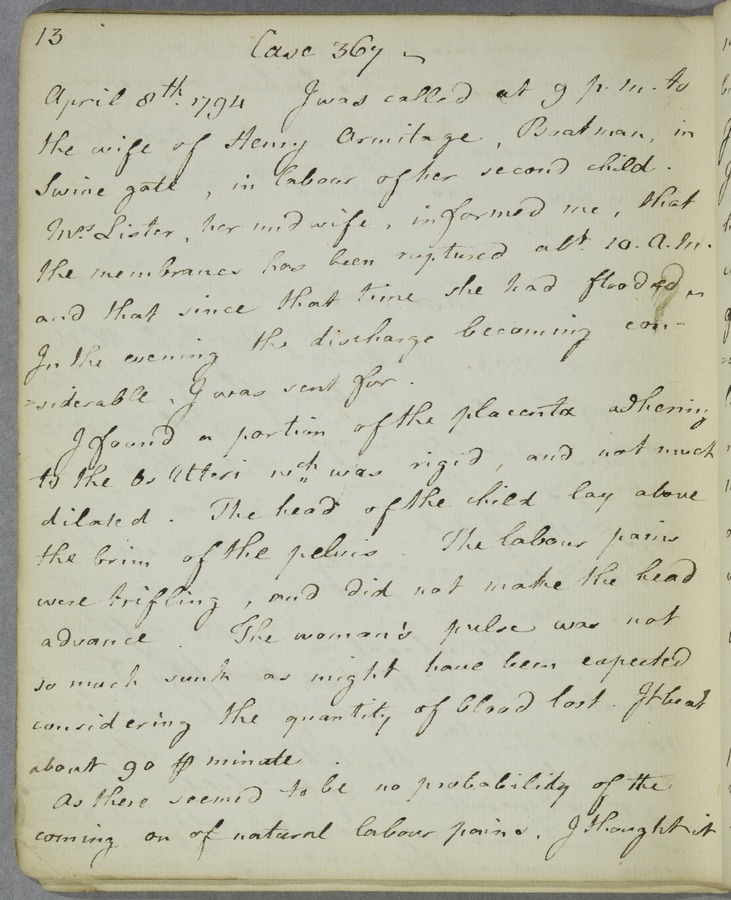 13
Case 367
April 8th. 1794 I was called at 9 p.m. to
the wife of Henry Armitage, Boatman, in
Swine gate, in labour of her second child.
Mrs Lister, her midwife, informed me, that
the membranes has been ruptured abt. 10. A.M.
and that since that time she had flooded
In the evening the discharge becoming con-
=siderable, I was sent for.
I found a portion of the placenta adhering
to the Os Uteri wch. was rigid, and not much
dilated. The head of the child lay above
the brim of the pelvis. The labour pains
were trifling, and did not make the head
advance. The woman's pulse was not
so much sunk as might have been expected
considering the quantity of blood lost. It beat
about 90 ⅌ minute.
As there seemed to be no probability of the
coming on of natural labour pains, I thought it